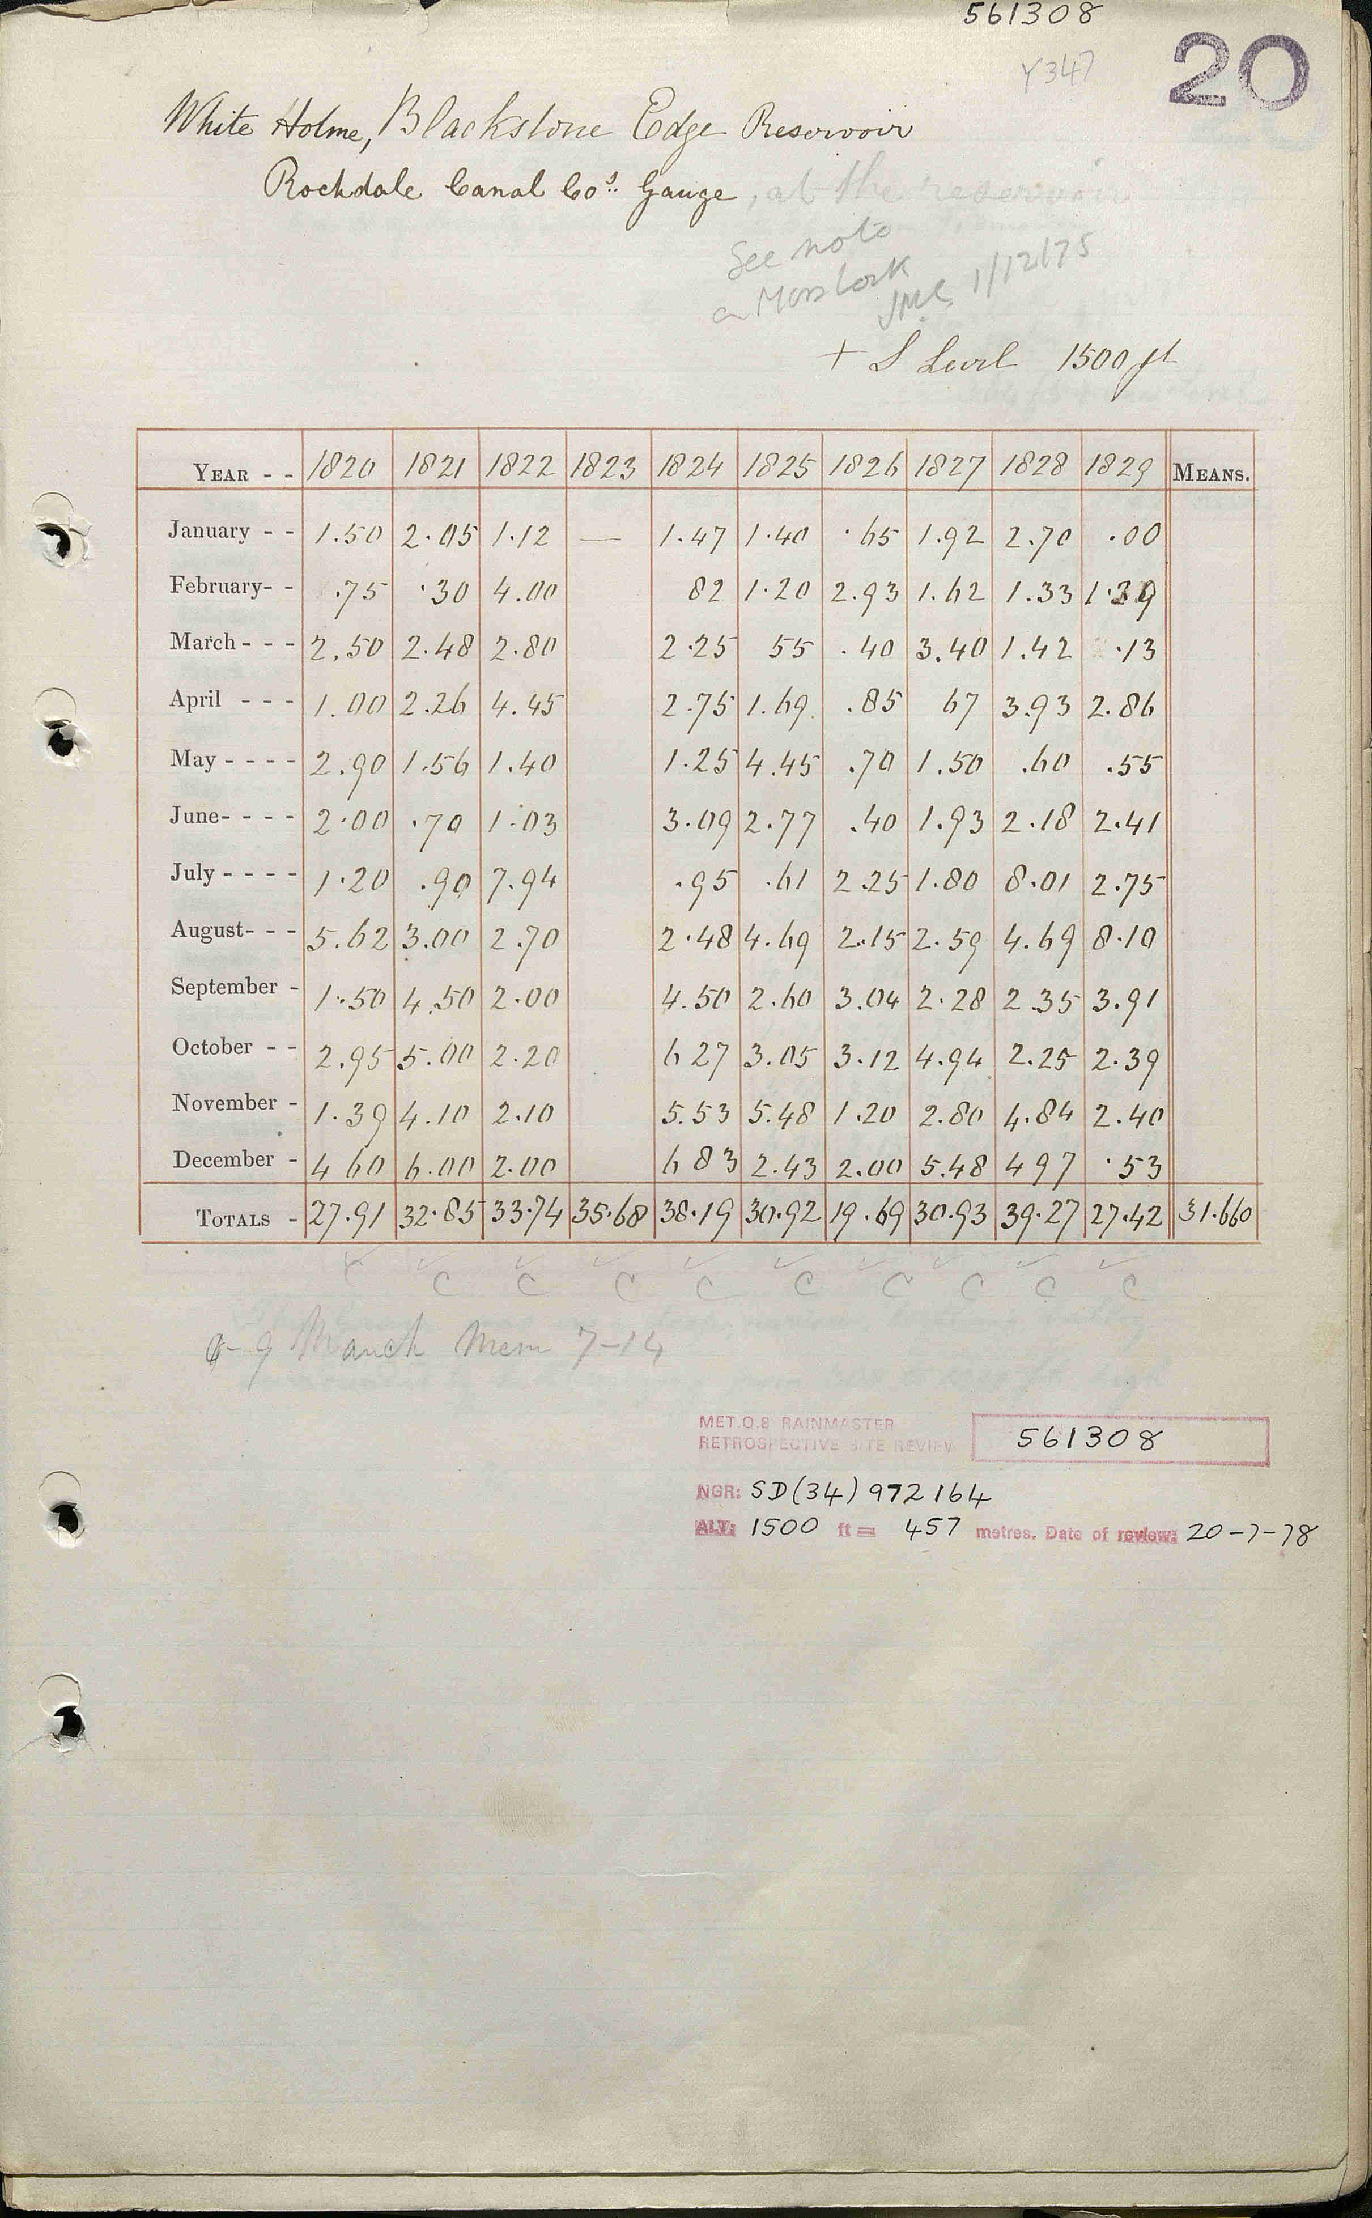 561308
Y347
20
White Holme, Blackstone Edge Reservoir
Rochdale Canal Co<sup>s</sup>. Gauge, at the reservoir
See note
on Moss Lock
JMC 1/12/75
+ S Level 1500 ft
YEAR - - 1820 1821 1822 1823 1824 1825 1826 1827 1828 1829 MEANS.
January - - 1.50 2.05 1.12 — 1.47 1.40 .65 1.92 2.70 .00
February- - .75 .30 4.00 82 1.20 2.93 1.62 1.33 1.39
March - - - 2.50 2.48 2.80 2.25 55 .40 3.40 1.42 .13
April - - - 1.00 2.26 4.45 2.75 1.69 .85 67 3.93 2.86
May - - - - 2.90 1.56 1.40 1.25 4.45 .70 1.50 .60 .55
June- - - - 2.00 .70 1.03 3.09 2.77 .40 1.93 2.18 2.41
July - - - - 1.20 .90 7.94 .95 .61 2.25 1.80 8.01 2.75
August- - - 5.62 3.00 2.70 2.48 4.69 2.15 2.59 4.69 8.10
September - 1.50 4.50 2.00 4.50 2.60 3.04 2.28 2.35 3.91
October - - 2.95 5.00 2.20 6 27 3.05 3.12 4.94 2.25 2.39
November - 1.39 4.10 2.10 5.53 5.48 1.20 2.80 4.84 2.40
December - 4 60 6.00 2.00 6 83 2.43 2.00 5.48 4 97 .53
TOTALS - 27.91 32.85 33.74 35.68 38.19 30.92 19.69 30.93 39.27 27.42 31.660
C C C C C C C C C C
Manch Mem 7-14
MET.O.8 RAINMASTER
RETROSPECTIVE SITE REVIEW 561308
NGR: SD(34) 972 164
ALT: 1500 ft = 457 metres. Date of review: 20-7-78